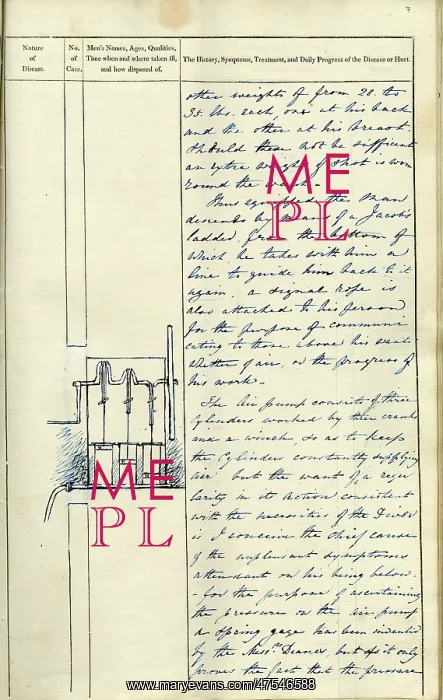 7
Nature
of
Disease.
No.
of
Case.
Men's Names, Ages, Qualities,
Time when and where taken ill,
and how disposed of.
The History, Symptoms, Treatment, and Daily Progress of the Disease or Hurt.
other weights of from 28. to
35. lbs. each, one at his back
and the other at his breast.
Should these not be sufficient
an extra weight of shot is worn
round the waist.
Thus equipped the man
descends by means of a Jacobs
ladder, from the bottom of
which, he takes with him a
line to guide him back to it
again, a signal rope is
also attached to his person
for the purpose of communi
cating to those above his want
whether of air, or the progress of
his work.
The Air pump consists of three
Cylinders worked by three cranks
and a winch, so as to keep
the Cylinders constantly supplying
air, but the want of a regu
larity in its action consistent
with the necessities of the Diver
is I conceive the chief cause
of the unpleasant symptoms
attendant on his being below.
- for the purpose of ascertaining
the pressure on the air pump
a Spring gage has been invented
by the Messrs Deanes, but it only
proves the fact that the pressure
ME
PL
ME
PL
www.maryevans.com/47546588